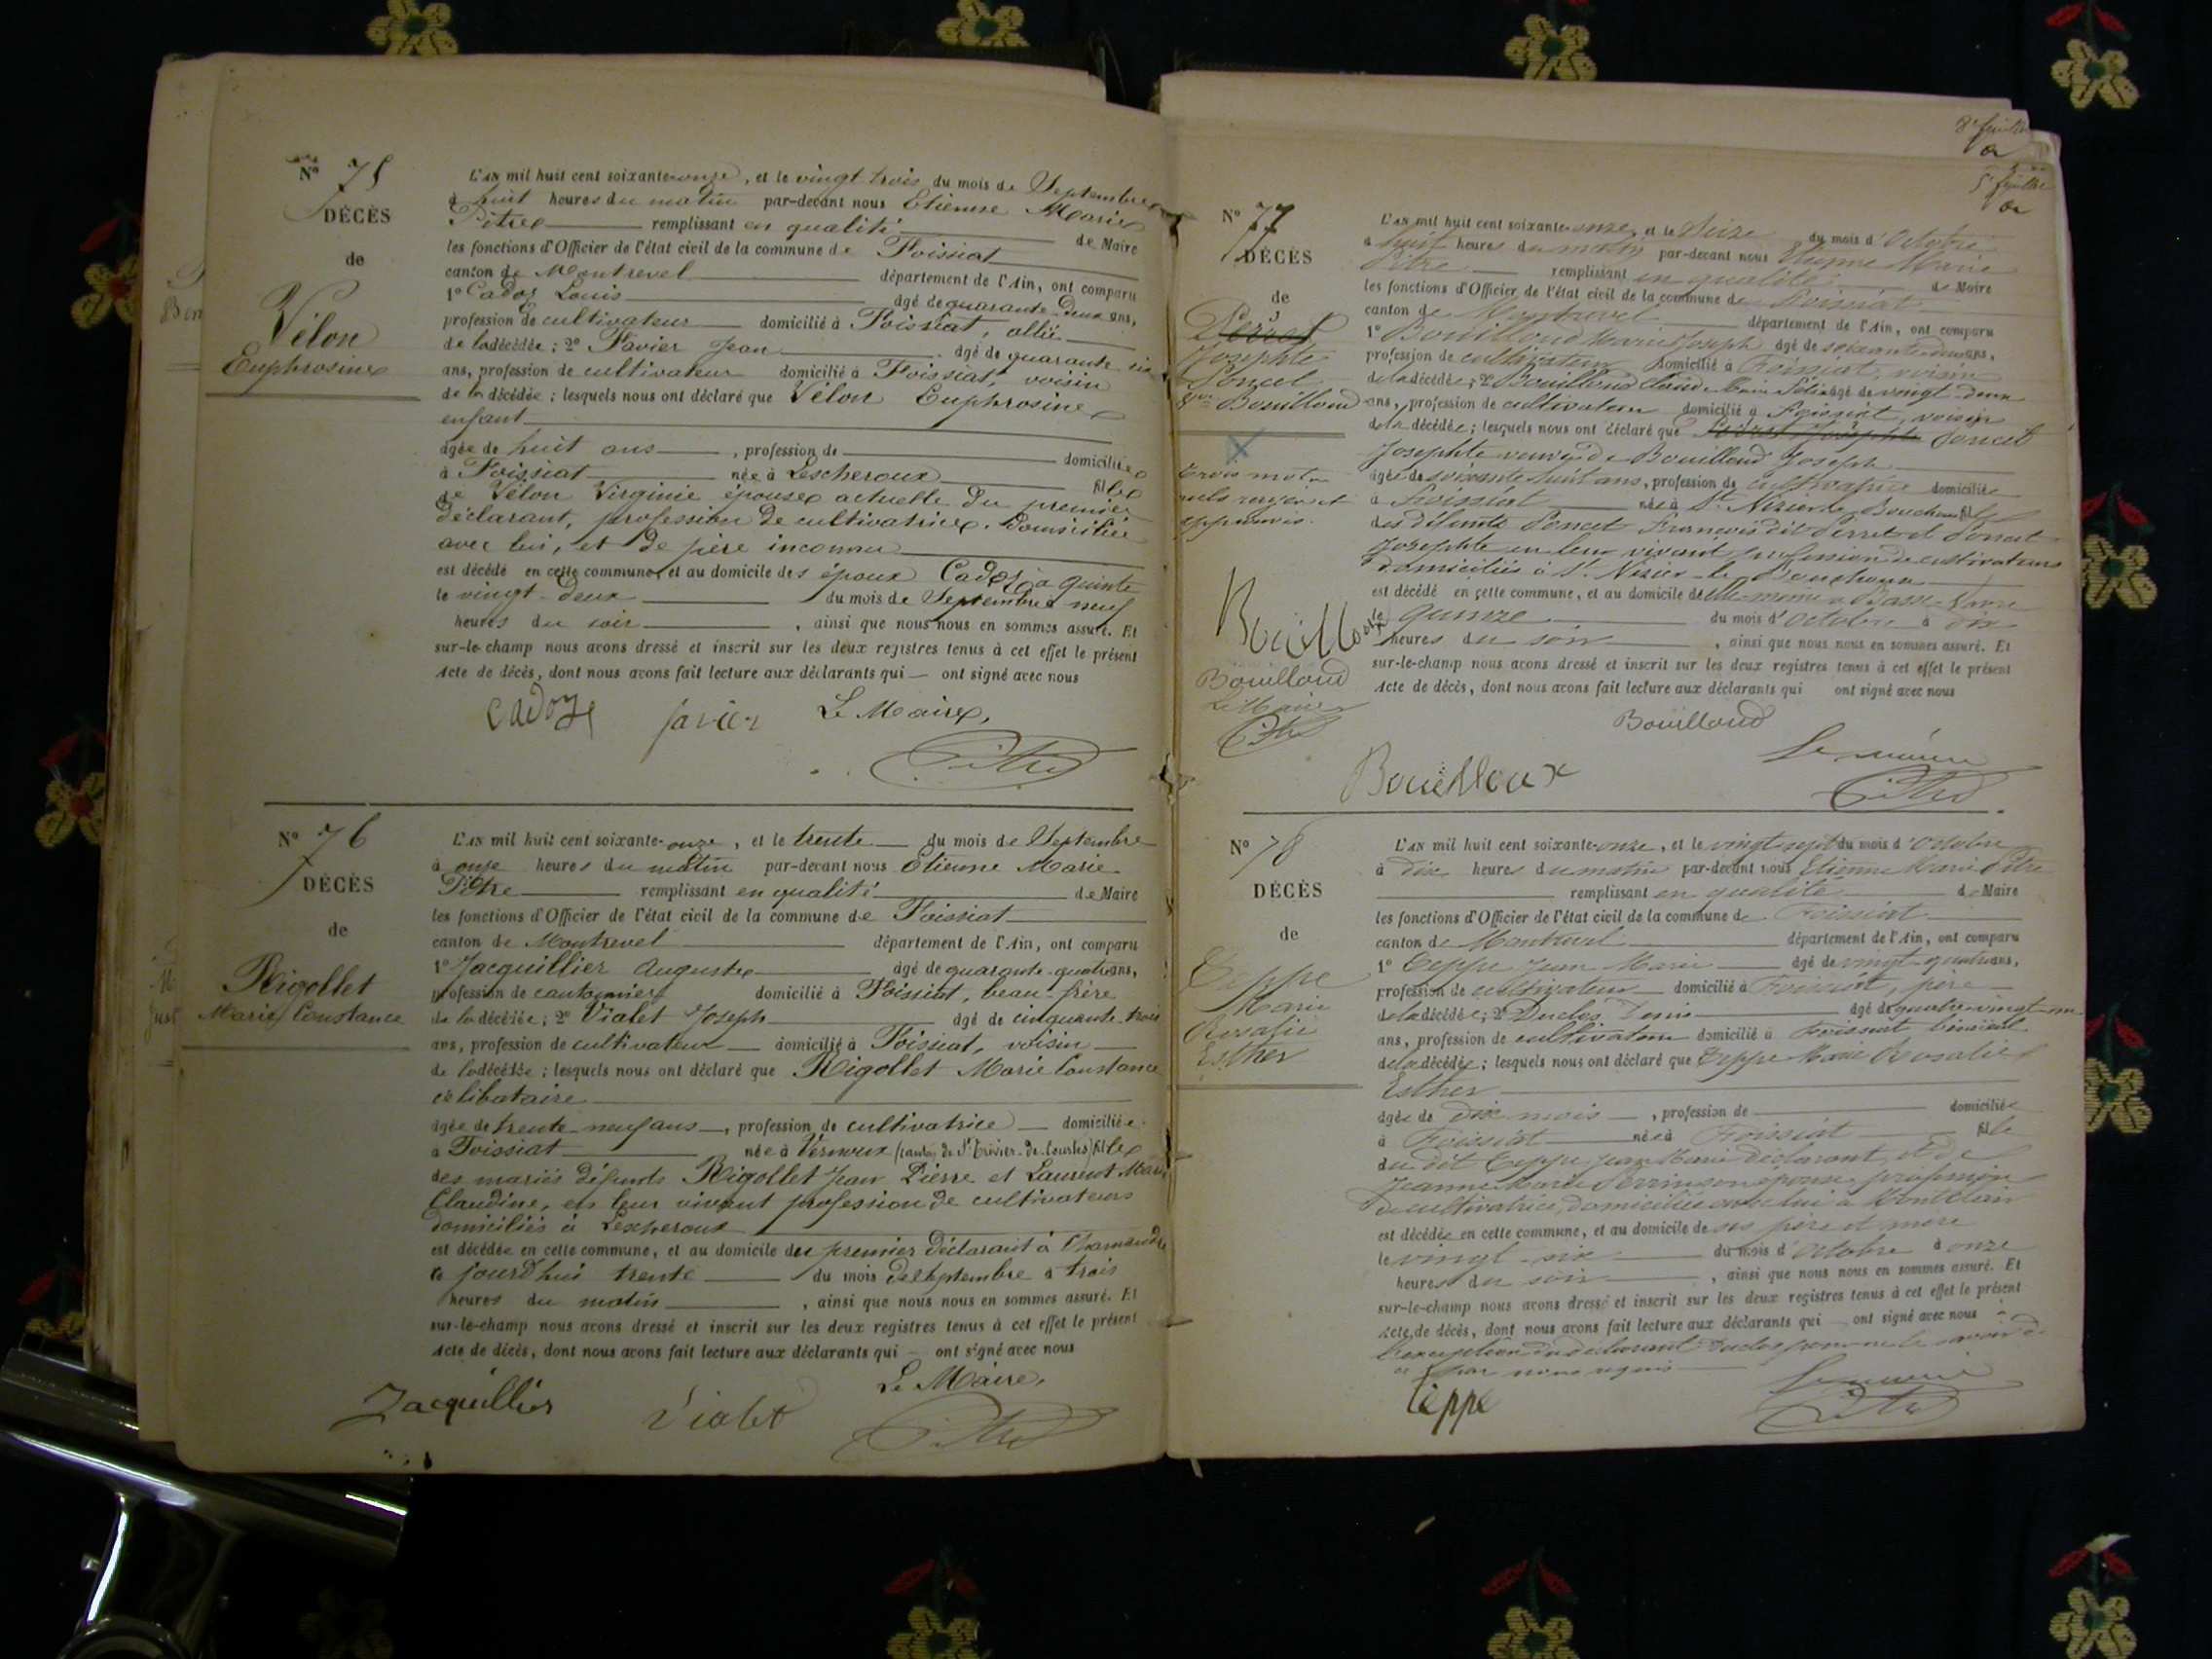 Nº 75
DÉCÈS
de
Vélon
Euphrosine
L'AN mil huit cent soixante-onze, et le vingt trois du mois de Septembre
à huit heures du matin par-devant nous Etienne Marie
Pitre remplissant en qualité de Maire
les fonctions d'Officier de l'état civil de la commune de Foissiat
canton de Montrevel département de l'Ain, ont comparu
1º Cadoz Louis âgé de quarante-deux ans,
profession de cultivateur domicilié à Foissiat, allié
de la décédée; 2º Favier Jean âgé de quarante six
ans, profession de cultivateur domicilié à Foissiat, voisin
de la décédée; lesquels nous ont déclaré que Vélon Euphrosine
enfant
âgée de huit ans, profession de domiciliée
à Foissiat née à Lescheroux fille
de Vélon Virginie épouse actuelle du premier
déclarant, profession de cultivatrice, domiciliée
avec lui, et de père inconnu
est décédé en cette commune, et au domicile des époux Cadoz à Quinte
le vingt-deux du mois de Septembre à neuf
heures du soir, ainsi que nous nous en sommes assuré. Et
sur-le-champ nous avons dressé et inscrit sur les deux registres tenus à cet effet le présent
Acte de décès, dont nous avons fait lecture aux déclarants qui ont signé avec nous
Cadoz Favier Le Maire,
Pitre
Nº 76
DÉCÈS
de
Rigollet
Marie Constance
L'AN mil huit cent soixante-onze, et le trente du mois de Septembre
à onze heures du matin par-devant nous Etienne Marie
Pitre remplissant en qualité de Maire
les fonctions d'Officier de l'état civil de la commune de Foissiat
canton de Montrevel département de l'Ain, ont comparu
1º Jacquillier Auguste âgé de quarante-quatre ans,
profession de cantonnier domicilié à Foissiat, beau-frère
de la décédée; 2º Violet Joseph âgé de cinquante-trois
ans, profession de cultivateur domicilié à Foissiat, voisin
de la décédée; lesquels nous ont déclaré que Rigollet Marie Constance
célibataire
âgée de trente-neuf ans, profession de cultivatrice domiciliée
à Foissiat née à Vernoux (canton de St Trivier-de-Courtes) fille
des mariés défunts Rigollet Jean Pierre et Laurent Marie
Claudine, en leur vivant profession de cultivateurs
domiciliés à Lescheroux
est décédée en cette commune, et au domicile du premier déclarant à
ce jourd'hui trente du mois de Septembre à trois
heures du matin, ainsi que nous nous en sommes assuré. Et
sur-le-champ nous avons dressé et inscrit sur les deux registres tenus à cet effet le présent
Acte de décès, dont nous avons fait lecture aux déclarants qui ont signé avec nous
Le Maire,
Jacquillier Violet Pitre
8e feuillet
5e feuillet
Nº 77
DÉCÈS
de
Perret
Josephte
Poncet
Vve Bouilloud
trois mots
nuls rayés et
approuvés.
Bouilloux
Bouilloud
Le Maire
Pitre
L'AN mil huit cent soixante-onze, et le Seize du mois d'Octobre
à huit heures du matin par-devant nous Etienne Marie
Pitre remplissant en qualité de Maire
les fonctions d'Officier de l'état civil de la commune de Foissiat
canton de Montrevel département de l'Ain, ont comparu
1º Bouilloud Marie Joseph âgé de soixante-deux ans,
profession de cultivateur domicilié à Foissiat, voisin
de la décédée; 2º Bouilloud Claude Marie âgé de vingt-deux
ans, profession de cultivateur domicilié à Foissiat, voisin
de la décédée; lesquels nous ont déclaré que Perret Josephte Poncet
Josephte veuve de Bouilloud Joseph
âgée de soixante huit ans, profession de cultivatrice domiciliée
à Foissiat née à St Nizier-le-Bouchoux fille
des défunts Poncet François dit Perret et Poncet
Josephte en leur vivant profession de cultivateurs
domiciliés à St Nizier-le-Bouchoux
est décédé en cette commune, et au domicile d'elle-même à
le quinze du mois d'Octobre à
heures du soir, ainsi que nous nous en sommes assuré. Et
sur-le-champ nous avons dressé et inscrit sur les deux registres tenus à cet effet le présent
Acte de décès, dont nous avons fait lecture aux déclarants qui ont signé avec nous
Bouilloud
Le maire
Bouilloux Pitre
Nº 78
DÉCÈS
de
Teppe
Marie
Rosalie
Esther
L'AN mil huit cent soixante-onze, et le vingt-sept du mois d'Octobre
à dix heures du matin par-devant nous Etienne Marie Pitre
remplissant en qualité de Maire
les fonctions d'Officier de l'état civil de la commune de Foissiat
canton de Montrevel département de l'Ain, ont comparu
1º Teppe Jean Marie âgé de vingt-quatre ans,
profession de cultivateur domicilié à Foissiat, père
de la décédée; 2º Duclos Denis âgé de quatre-vingt-un
ans, profession de cultivateur domicilié à Foissiat
de la décédée; lesquels nous ont déclaré que Teppe Marie Rosalie
Esther
âgée de dix mois, profession de domiciliée
à Foissiat née à Foissiat fille
du dit Teppe Jean Marie déclarant, et de
Jeanne Marie Perrin son épouse, profession
de cultivatrice, domiciliée avec lui à
est décédée en cette commune, et au domicile de ses père et mère
le vingt-six du mois d'Octobre à onze
heures du soir, ainsi que nous nous en sommes assuré. Et
sur-le-champ nous avons dressé et inscrit sur les deux registres tenus à cet effet le présent
Acte de décès, dont nous avons fait lecture aux déclarants qui ont signé avec nous à
l'exception du déclarant Duclos pour ne le savoir de
ce par nous requis
Le maire
Teppe Pitre